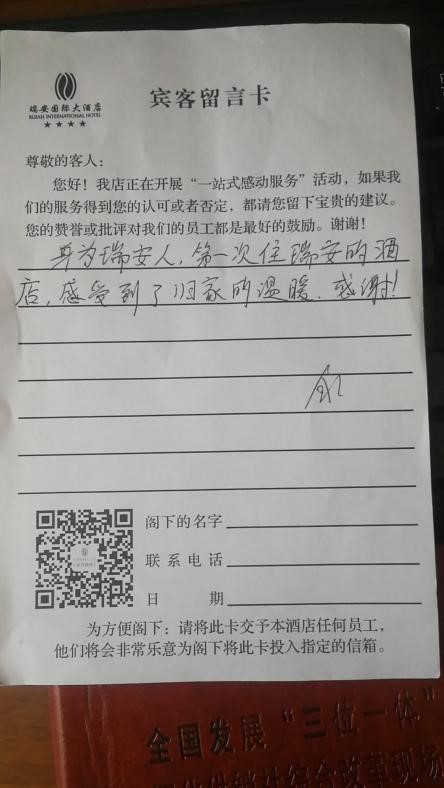 瑞安国际大酒店
RUIAN INTERNATIONAL HOTEL
★★★★
宾客留言卡
尊敬的客人：
您好！我店正在开展“一站式感动服务”活动，如果我
们的服务得到您的认可或者否定，都请您留下宝贵的建议。
您的赞誉或批评对我们的员工都是最好的鼓励。谢谢！
身为瑞安人，第一次住瑞安的酒
店，感受到了归家的温暖．感谢！
阁下的名字
联系电话
日期
为方便阁下：请将此卡交予本酒店任何员工，
他们将会非常乐意为阁下将此卡投入指定的信箱。
全国发展“三位一体”
供销社综合改革现场